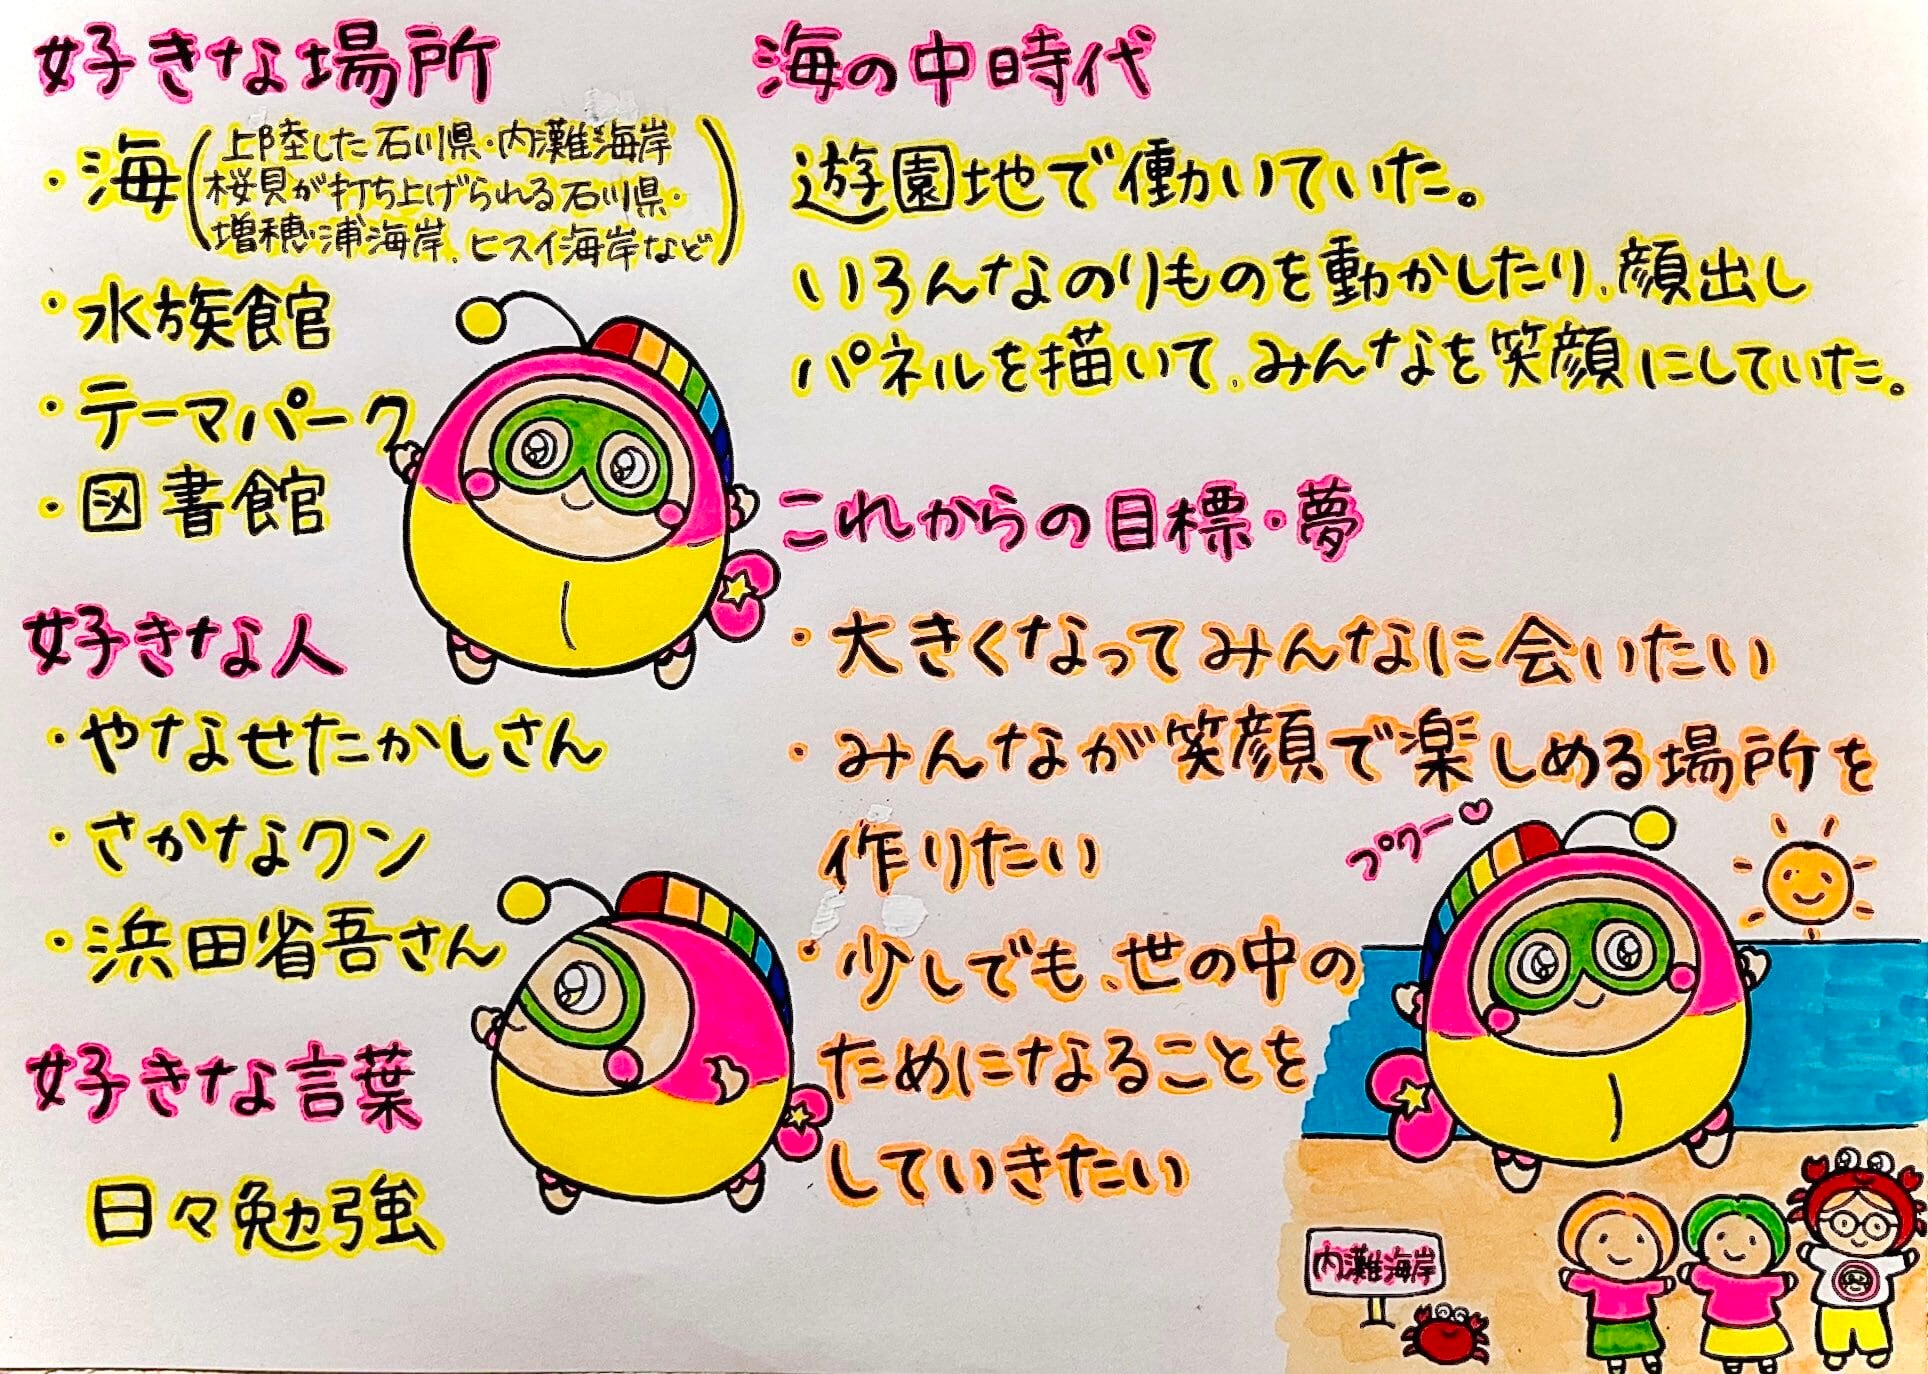 好きな場所
・海(上陸した石川県・内灘海岸
桜貝が打ち上げられる石川県・
増穂浦海岸、ヒスイ海岸など)
・水族館
・テーマパーク
・図書館
好きな人
・やなせたかしさん
・さかなクン
・浜田省吾さん
好きな言葉
日々勉強
海の中時代
遊園地で働いていた。
いろんなのりものを動かしたり、顔出し
パネルを描いて、みんなを笑顔にしていた。
これからの目標・夢
・大きくなってみんなに会いたい
・みんなが笑顔で楽しめる場所を
作りたい
・少しでも、世の中の
ためになることを
していきたい
プクー♡
内灘海岸